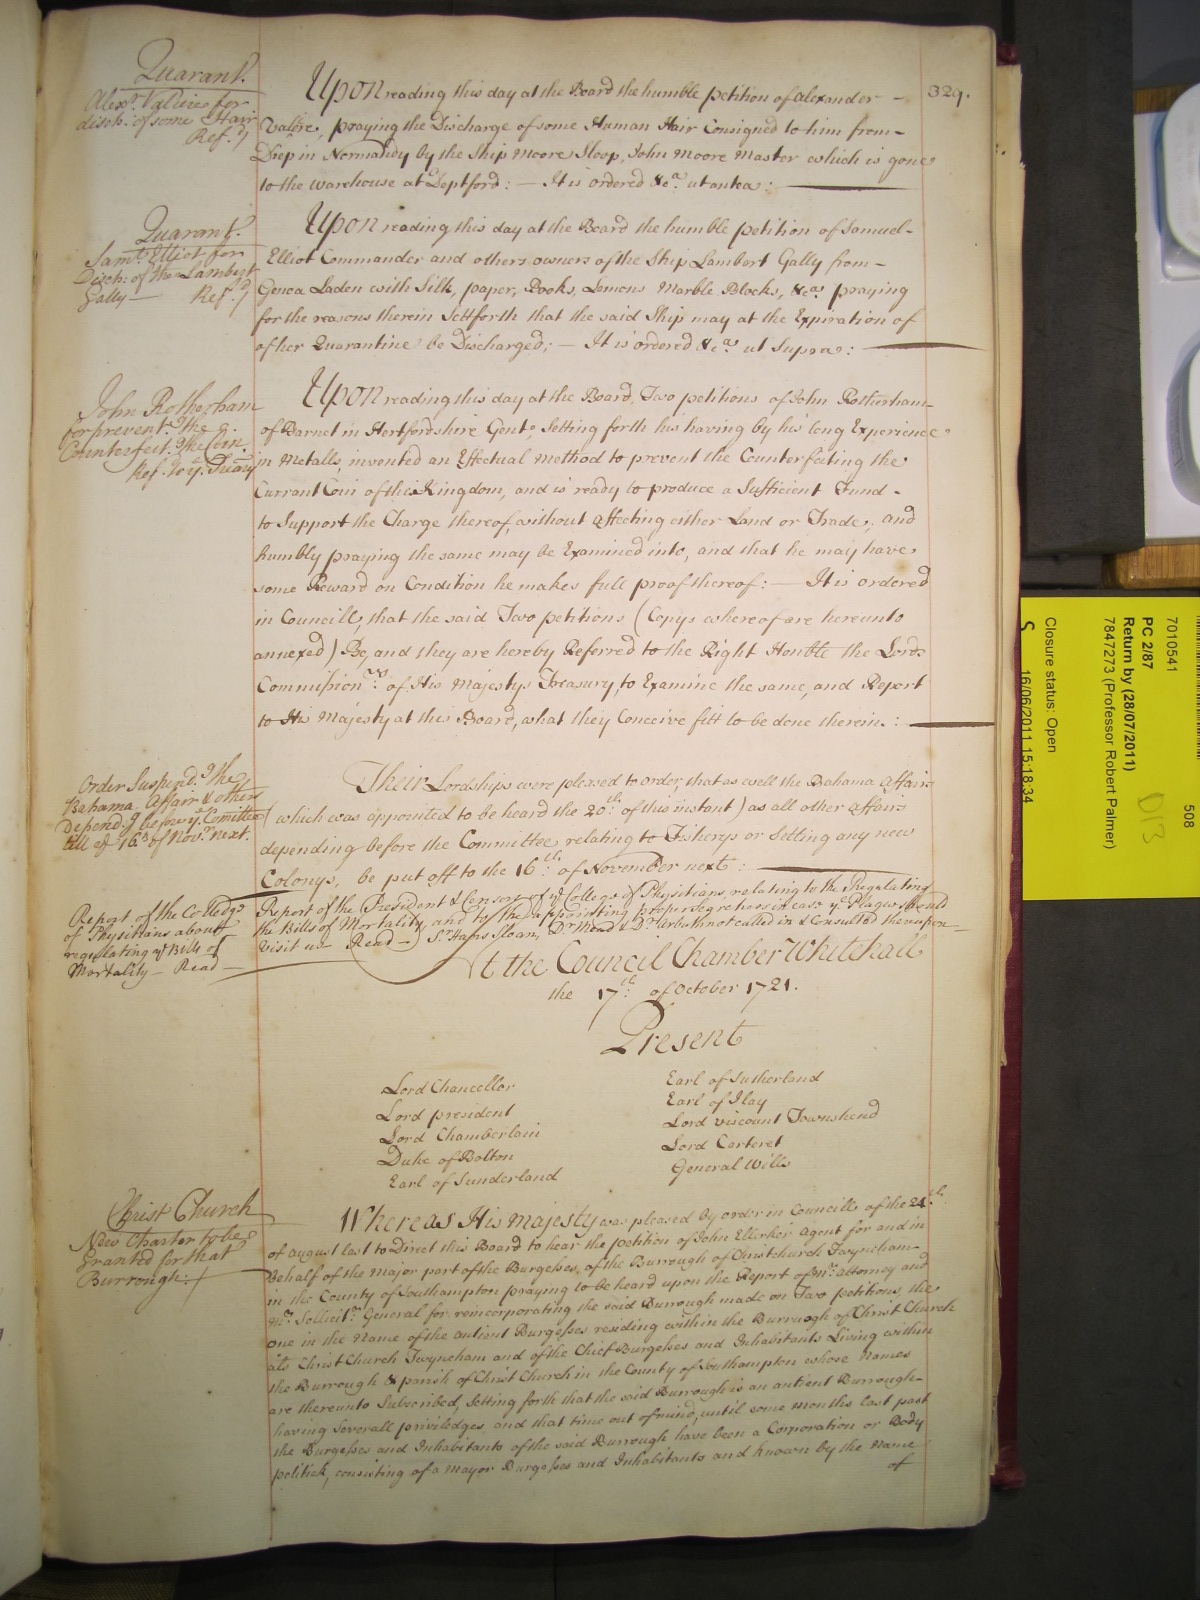 329.
Quarant.
Alexr. Valiere for
disch: of some Hair
Ref.d
Upon reading this day at the Board the humble petition of Alexander –
Valiere, praying the Discharge of some Human Hair Consigned to him from –
Diep in Normandy by the Ship Moore Sloop, John Moore Master which is gone
to the warehouse at Deptford: — It is ordered &ca. ut antea:
Quarant.
Saml. Elliot for
Disch: of the Lambert
Gally — Ref.d
Upon reading this day at the Board the humble petition of Samuel –
Elliot Commander and others owners of the Ship Lambert Gally from –
Genoa Laden with Silk, paper, Books, Lemons Marble Blocks, &ca. praying
for the reasons therein Settforth that the said Ship may at the Expiration of
of her Quarantine be Discharged; — It is ordered &ca. ut Supra:
John Rotherham
for prevent.g the
Counterfeit.g the Coin.
Ref. to ye. Treary
Upon reading this day at the Board, Two petitions of John Rotherham –
of Barnet in Hertfordshire Gent., Setting forth his having by his long Experience
in Metalls, invented an Effectual method to prevent the Counterfeiting the
Currant Coin of this Kingdom, and is ready to produce a Sufficient Fund –
to Support the Charge thereof, without affecting either Land or Trade; and
humbly praying the same may be Examined into, and that he may have
some Reward on Condition he makes full proof thereof: — It is ordered
in Councill, that the said Two petitions (Copys whereof are hereunto
annexed) Be, and they are hereby Referred to the Right Honble the Lords
Commissionrs. of His Majestys Treasury, to Examine the same, and Report
to His Majesty at this Board, what they Conceive fitt to be done therein. :
Order Suspend.g the
Bahama Affair & others
depend.g before ye. Comittee
till ye 16th of Novr. next.
Their Lordships were pleased to order, that as well the Bahama Affair
(which was appointed to be heard the 20th. of this instant) as all other Affairs
depending before the Committee relating to Fisherys or Setling any new
Colonys, be put off to the 16th. of November next:
Report of the Colledge
of Physitians about
regulating ye Bills of
Mortality — Read —
Report of the President & Censors of ye College of Physitians, relating to the Regulating
the Bills of Mortality, and to the appointing proper Searchers in case ye. Plague should
visit us — Read —) Sr. Hans Sloan, Dr. Mead & Dr. Arbuthnot called in & Consulted thereupon —
At the Council Chamber Whitehall
the 17th. of October 1721.
Present
Lord Chancellor
Lord president
Lord Chamberlain
Duke of Bolton
Earl of Sunderland
Earl of Sutherland
Earl of Ilay
Lord viscount Townshend
Lord Carteret
General Wills
Christ Church
New Charter to be
Granted for that
Burrough:
Whereas His Majesty was pleased by order in Councill of the 24th.
of August last to Direct this Board to hear the petition of John Ellerker Agent for and in
Behalf of the Major part of the Burgesses, of the Burrough of Christchurch Twyneham –
in the County of Southampton praying to be heard upon the Report of Mr. Attorney and
Mr. Sollicitr. General for reincorporating the said Burrough made on Two petitions, the
one in the Name of the antient Burgesses residing within the Burrough of Christ Church
als Christ Church Twyneham and of the Chief Burgesses and Inhabitants Living within
the Burrough & parish of Christ Church in the County of Southampton whose Names
are thereunto Subscribed, Setting forth that the said Burrough is an antient Burrough –
having Severall priviledges, and that time out of mind, until some months last past
the Burgesses and Inhabitants of the said Burrough have been a Corporation or Body
politick, consisting of a Mayor Burgesses and Inhabitants and known by the Name
of
508
7010541
PC 2/87
Return by (28/07/2011)
7847273 (Professor Robert Palmer)
D13
Closure status: Open
16/06/2011 15:18:34
S